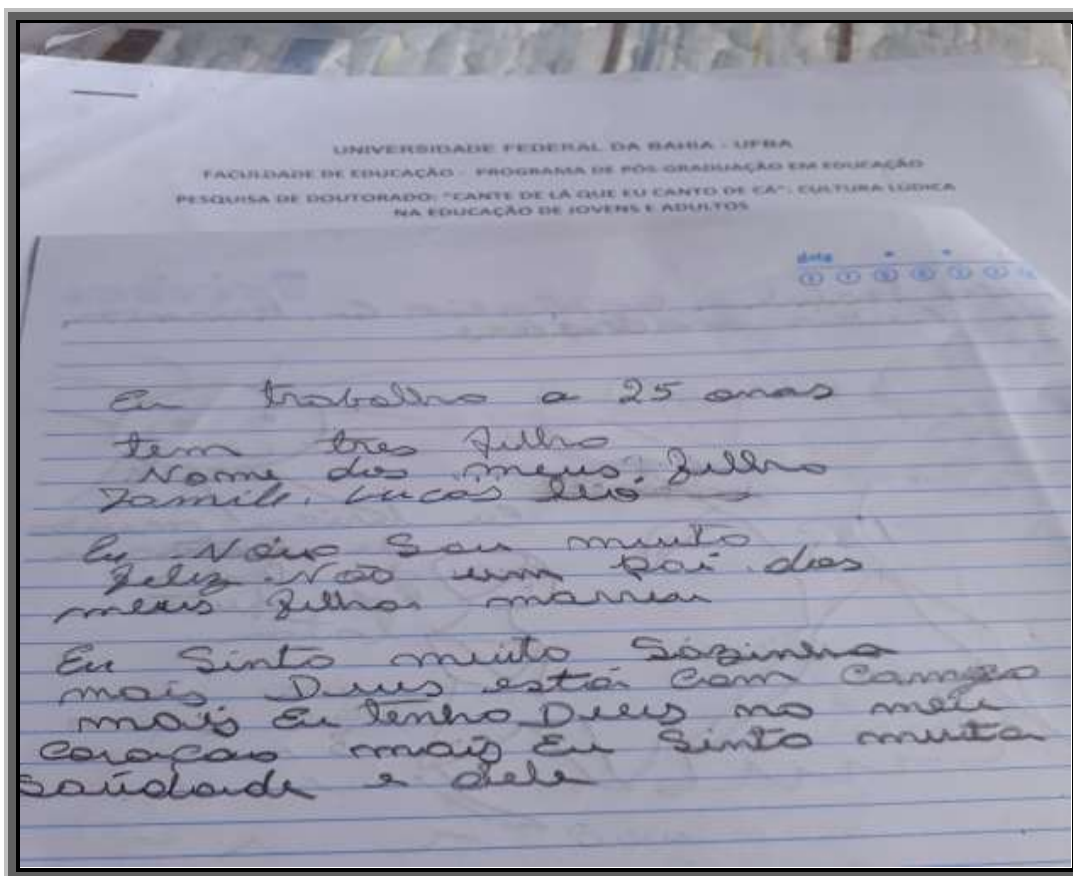 UNIVERSIDADE FEDERAL DA BAHIA - UFBA
FACULDADE DE EDUCAÇÃO - PROGRAMA DE PÓS-GRADUAÇÃO EM EDUCAÇÃO
PESQUISA DE DOUTORADO: "CANTE DE LÁ QUE EU CANTO DE CÁ": CULTURA LÚDICA
NA EDUCAÇÃO DE JOVENS E ADULTOS
date
Eu trabalho a 25 anos
tem tres filho
Nome dos meus filho
Lucas
Eu Não Sou muito
feliz Não um pai dos
meus filhos
Eu Sinto muito Sozinha
mais Deus está Com Camigo
mais Eu tenho Deus no meu
coraçao mais Eu Sinto muita
Saúdade e dele